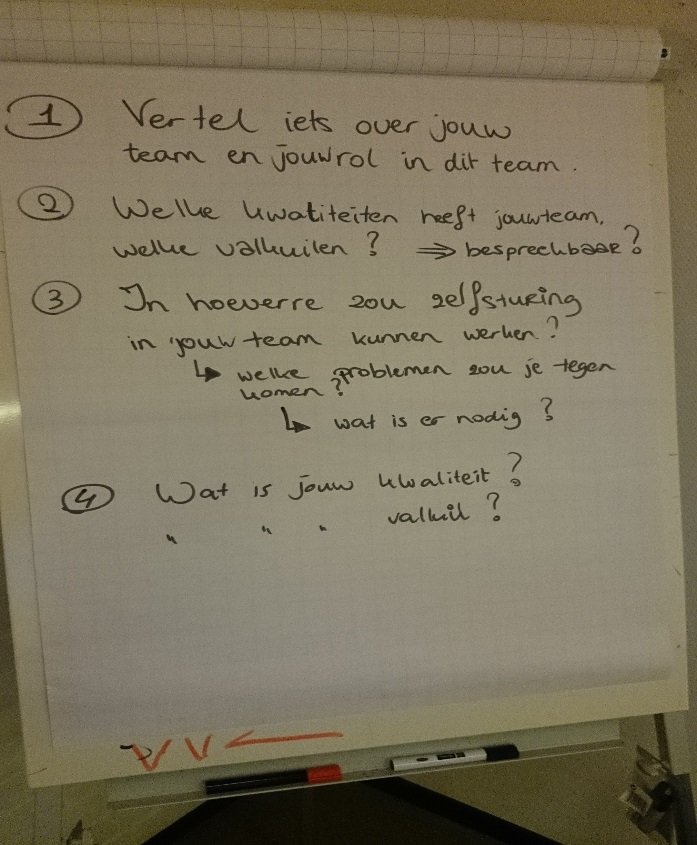 1 Vertel iets over jouw
team en jouw rol in dit team.
2 Welke kwaliteiten heeft jouw team,
welke valkuilen? ⇒ bespreekbaar?
3 In hoeverre zou zelfsturing
in jouw team kunnen werken?
↳ welke problemen zou je tegen
komen?
↳ wat is er nodig?
4 Wat is jouw kwaliteit?
" " " valkuil?